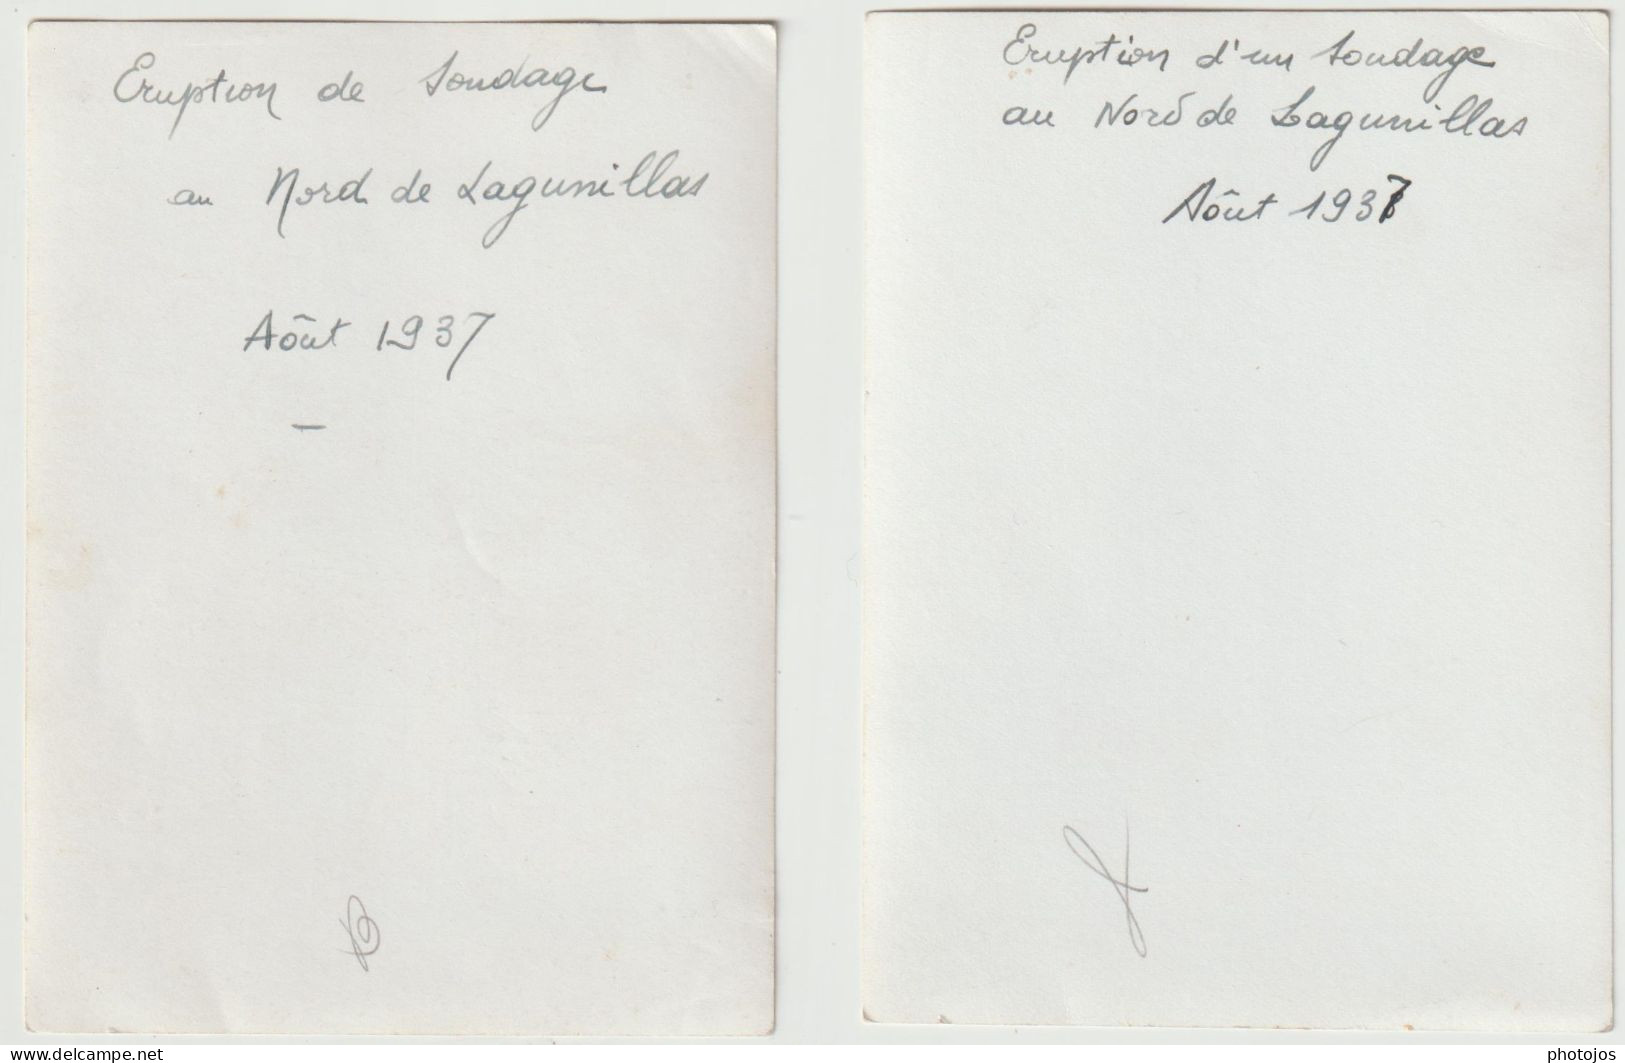 Eruption de Sondage
au Nord de Lagunillas
Aôut 1937
—
Eruption d'un Sondage
au Nord de Lagunillas
Aôut 1937
www.delcampe.net
photojos